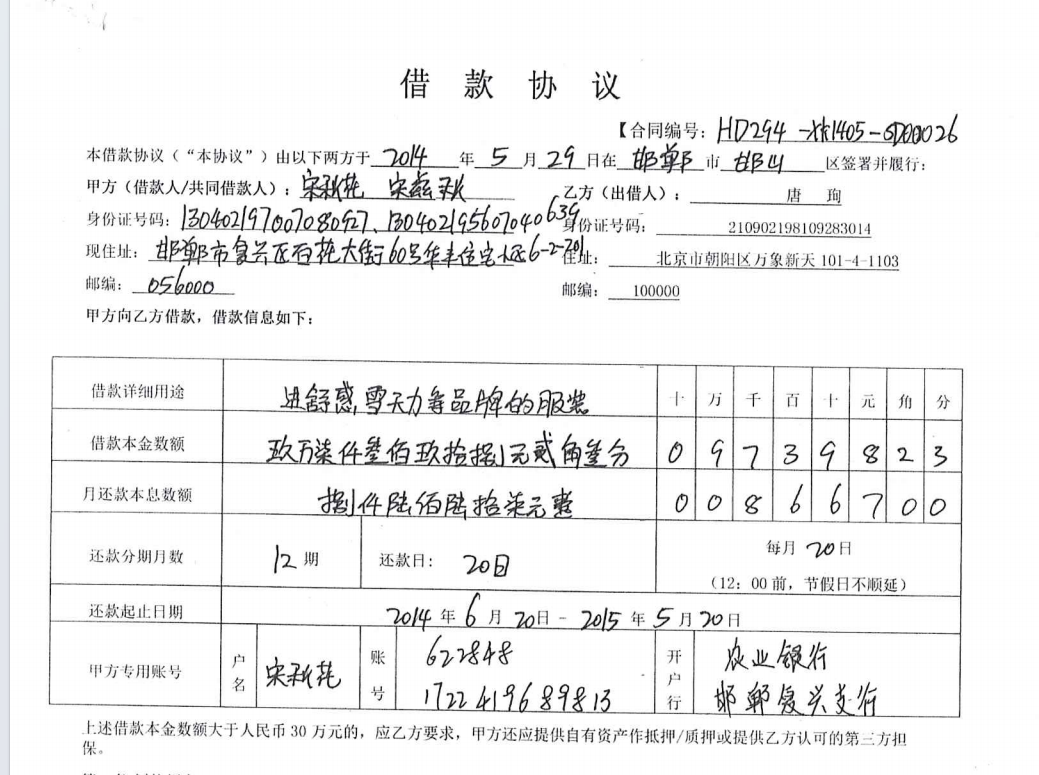 借 款 协 议
【合同编号：HD294 -1405-0026
本借款协议（“本协议”）由以下两方于 2014 年 5 月 29 日在 邯郸 市 邯山 区签署并履行：
甲方（借款人/共同借款人）：宋秋花 宋 乙方（出借人）： 唐 珣
身份证号码：130402197007080927、130402195607040639 身份证号码： 210902198109283014
现住址： 邯郸市复兴区百花大街60号华丰住宅小区6-2-201 住址： 北京市朝阳区万象新天 101-4-1103
邮编： 056000 邮编： 100000
甲方向乙方借款，借款信息如下：
借款详细用途 进舒惑，雪天力等品牌的服装 十 万 千 百 十 元 角 分
借款本金数额 玖万柒仟叁佰玖拾捌元贰角叁分 0 9 7 3 9 8 2 3
月还款本息数额 捌仟陆佰陆拾柒元整 0 0 8 6 6 7 0 0
还款分期月数 12 期 还款日： 20日 每月 20 日
（12：00 前，节假日不顺延）
还款起止日期 2014 年 6 月 20 日 - 2015 年 5 月 20 日
甲方专用账号 户名 宋秋花 账号 622848 1722419689813 开户行 农业银行 邯郸复兴支行
上述借款本金数额大于人民币 30 万元的，应乙方要求，甲方还应提供自有资产作抵押/质押或提供乙方认可的第三方担
保。